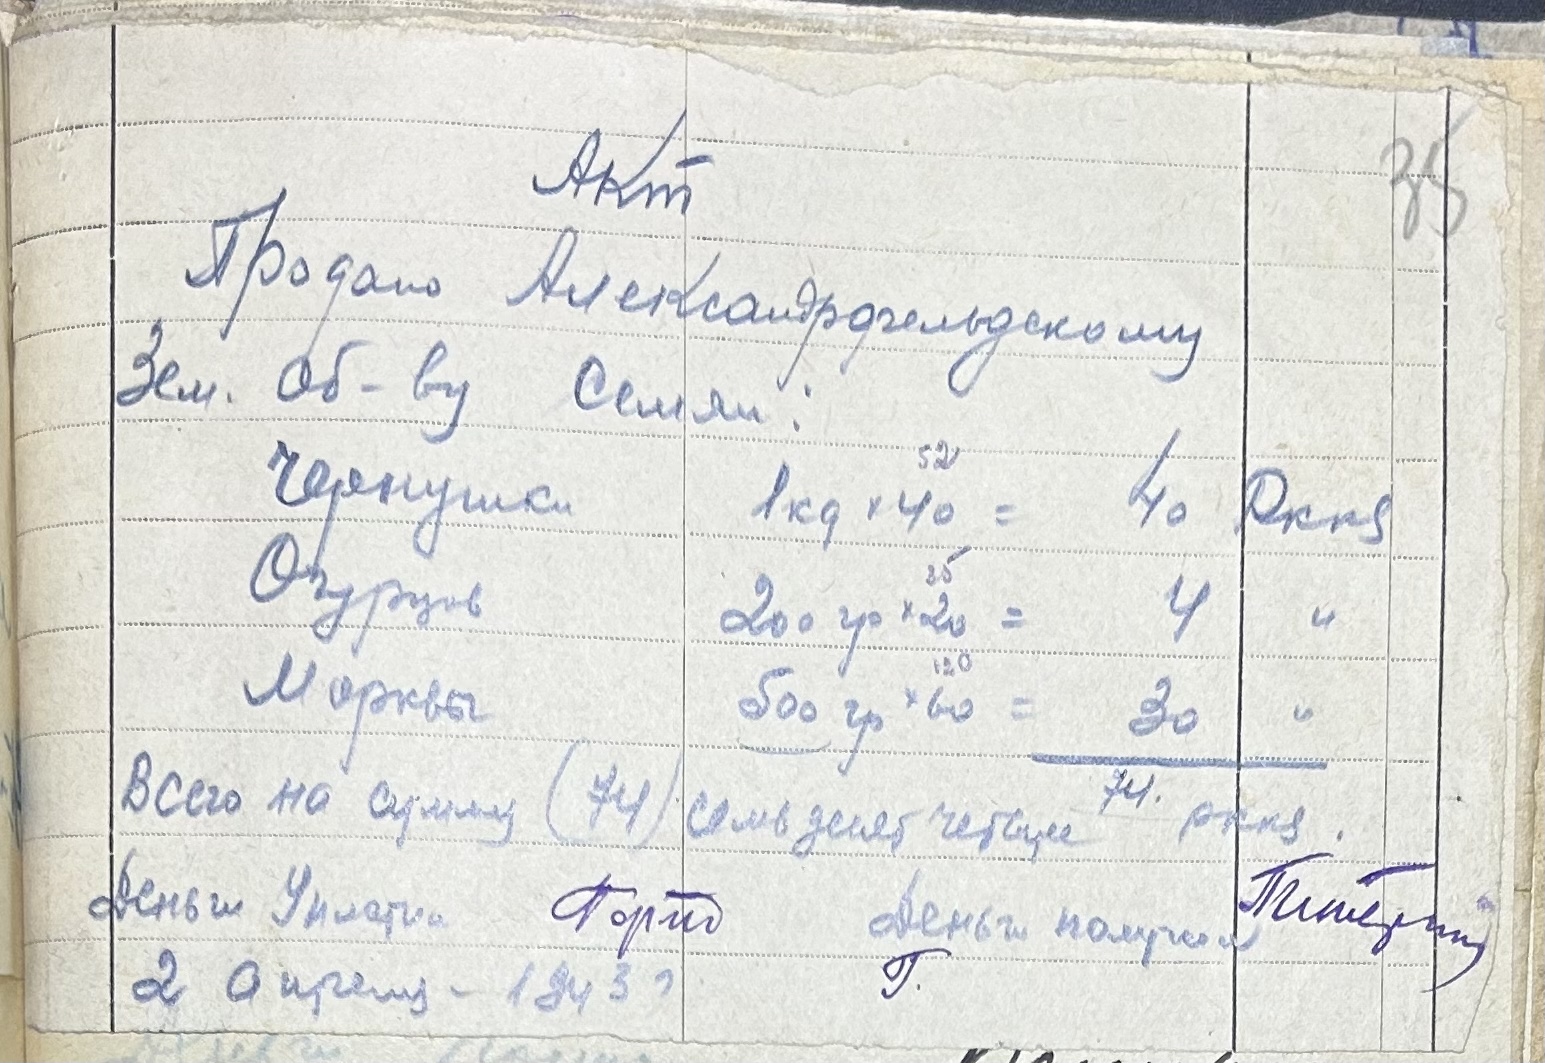 35
Акт
Продано Александрофельдскому
Зем. Об-ву Семян:
52
Чернушки 1кг × 40 = 40 Rккs
35
Огурцов 200 гр × 20 = 4 "
120
Морквы 500 гр × 60 = 30 "
Всего на сумму (74) семьдесят четыре 74. рккs.
Деньги Уплатил Деньги получил
2 апреля - 1943 г Г.